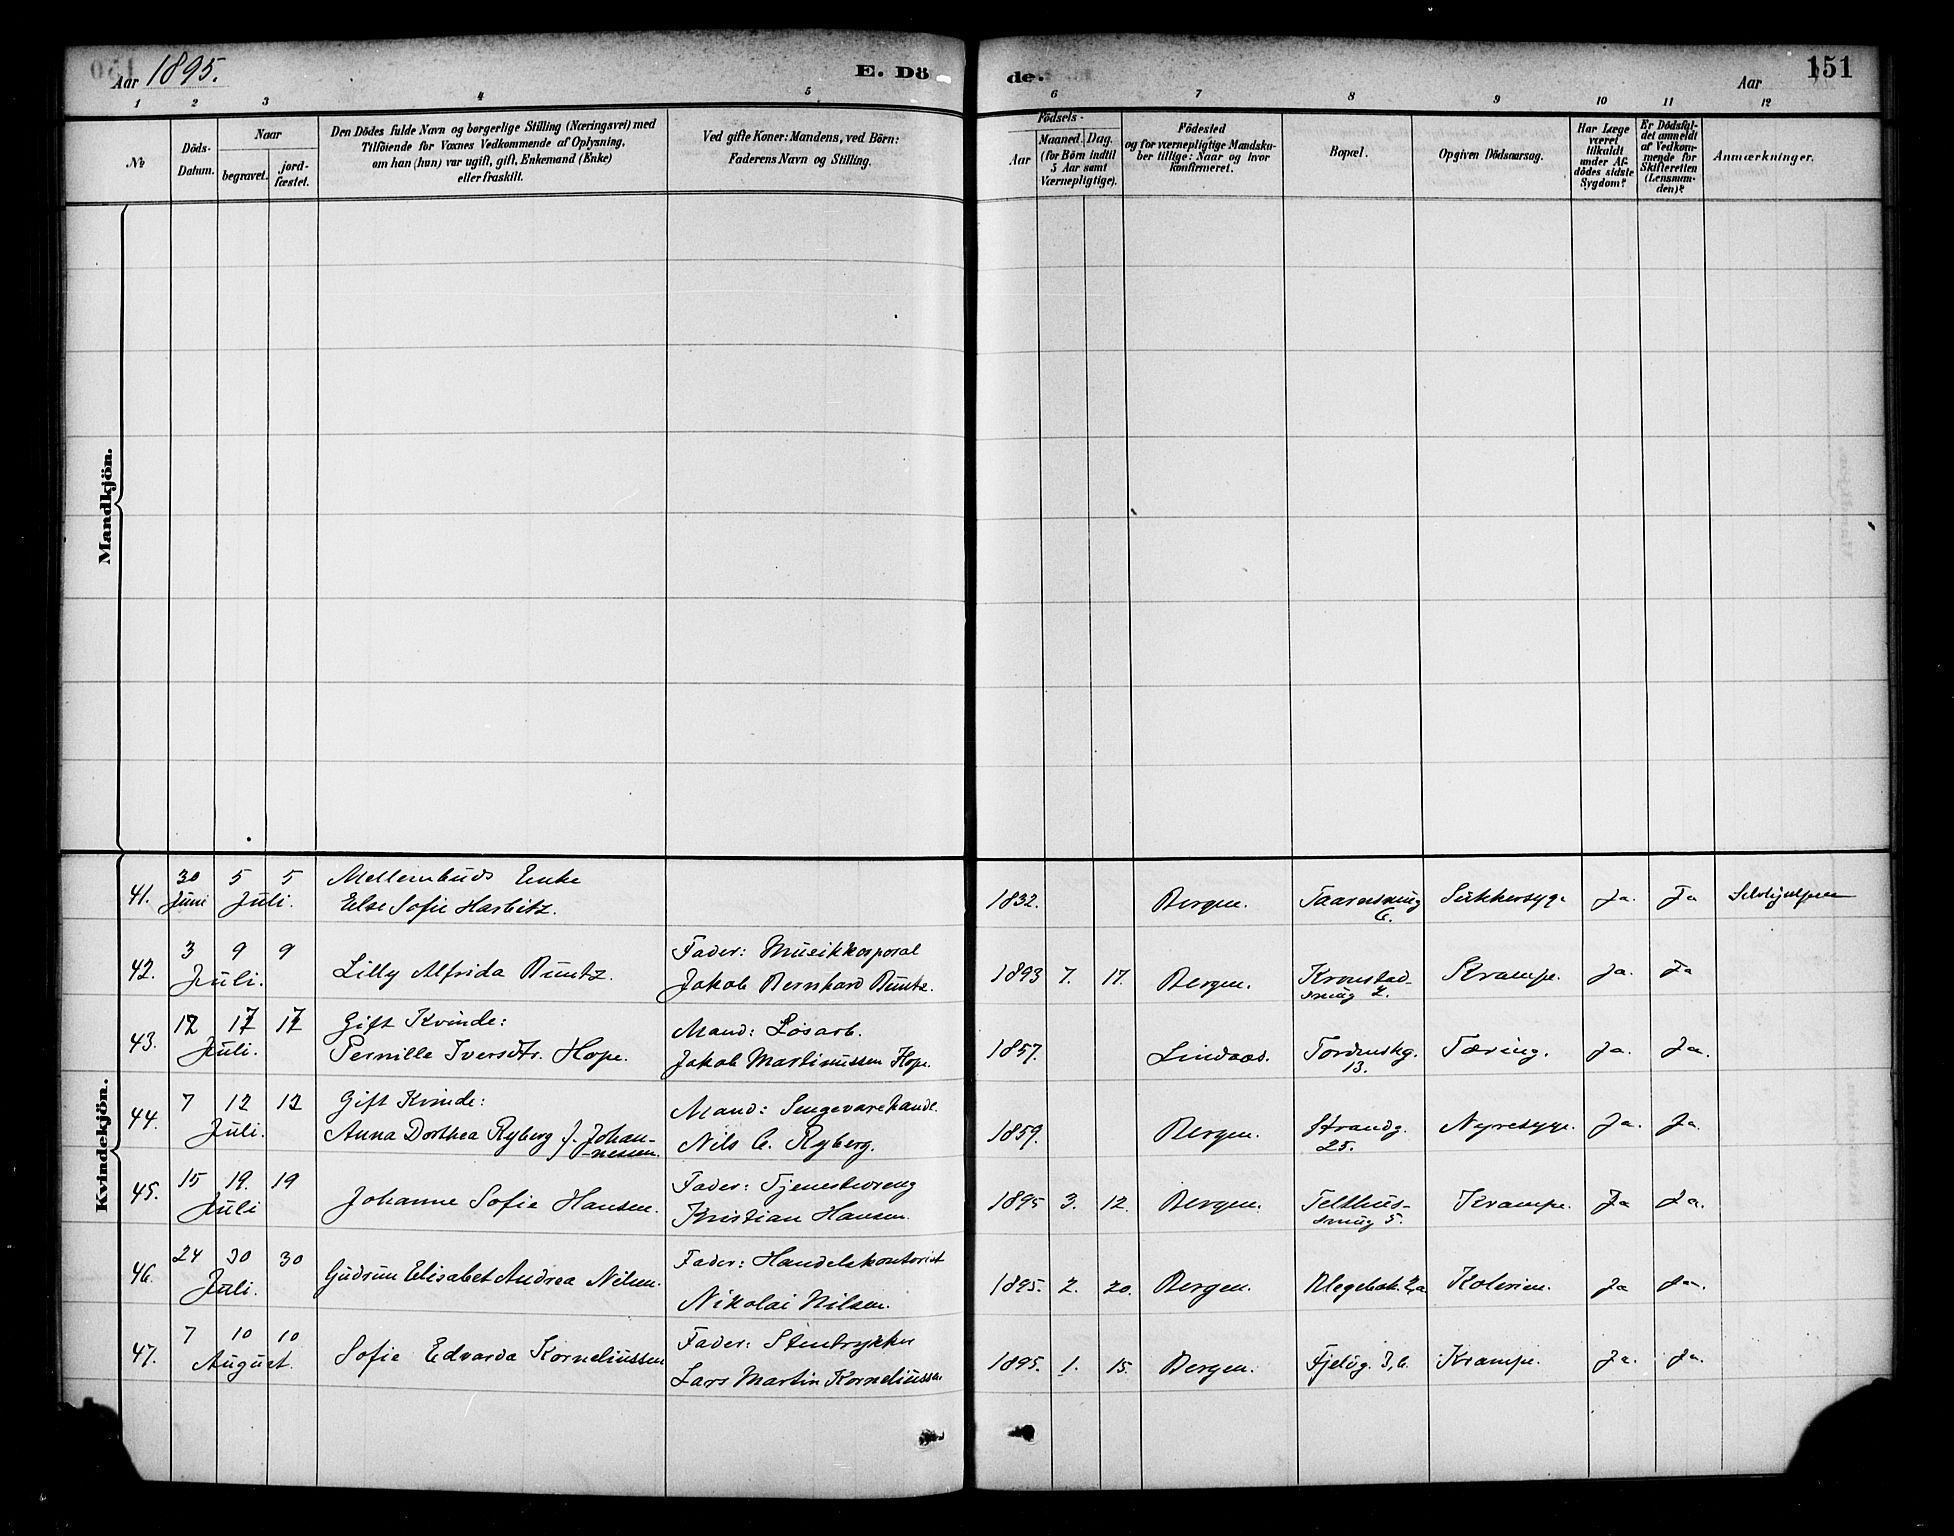 Aar 1895.
E. Dö
de.
Aar
151
1 2 3 4 5 6 7 8 9 10 11 12
No
Döds-
Datum.
Naar
begravet.
jord-
fæstet.
Den Dödes fulde Navn og borgerlige Stilling (Næringsvei) med
Tilföiende for Voxnes Vedkommende af Oplysning,
om han (hun) var ugift, gift, Enkemand (Enke)
eller fraskilt.
Ved gifte Koner: Mandens, ved Börn:
Faderens Navn og Stilling.
Födsels-
Aar
Maaned. Dag.
(for Börn indtil
5 Aar samt
Værnepligtige).
Födested
og for værnepligtige Mandsku-
ber tillige: Naar og hvor
konfirmeret.
Bopæl.
Opgiven Dödsaarsag.
Har Læge
været
tilkaldt
under Af-
dödes sidste
Sygdom?
Er Dödsfal-
det anmeldt
af Vedkom-
mende for
Skifteretten
(Lensman-
den)?
Anmærkninger.
Mandkjön.
Kvindekjön.
41. 30 Juni 5 5 Juli.
Mellembuds Enke
Else Sofie Harbitz.
1832. Bergen. 6. Sukkersyge Ja. Ja
42. 3 9 9 Juli.
Lilly Alfrida Buntz.
Fader: Musikkorporal
Jakob Bernhard Buntz.
1893 7. 17. Bergen. Kronstad-
smug 2. Krampe. Ja. Ja
43. 12 17 17 Juli.
Gift Kvinde:
Pernille Iversdtr. Hope.
Mand: Løsarb.
Jakob Martinussen Hope.
1857. Lindaas. Tordenskg.
13. Tæring. Ja. Ja.
44. 7 12 12 Juli.
Gift Kvinde:
Anna Dorthea Ryberg f. Johan-
nessen.
Mand: Sengevarehandl.
Nils C. Ryberg.
1859. Bergen. Strandg.
25. Nyresyge. Ja. Ja.
45. 15 19. 19 Juli
Johanne Sofie Hansen.
Fader: Tjenestedreng
Kristian Hansen.
1895 3. 12. Bergen. Telthus-
smug 5. Krampe. Ja Ja.
46. 24 30 30 Juli.
Gudrun Elisabet Andrea Nilsen.
Fader: Handelskontorist
Nikolai Nilsen.
1895. 2. 20. Bergen. Blegebak. 2,a Kolerine. Ja Ja.
47. 7 10 10 August.
Sofie Edvarda Korneliussen
Fader: Stentrykker
Lars Martin Korneliussen
1895. 1. 15. Bergen. Fjeldg. 3,b. Krampe. Ja. Ja.